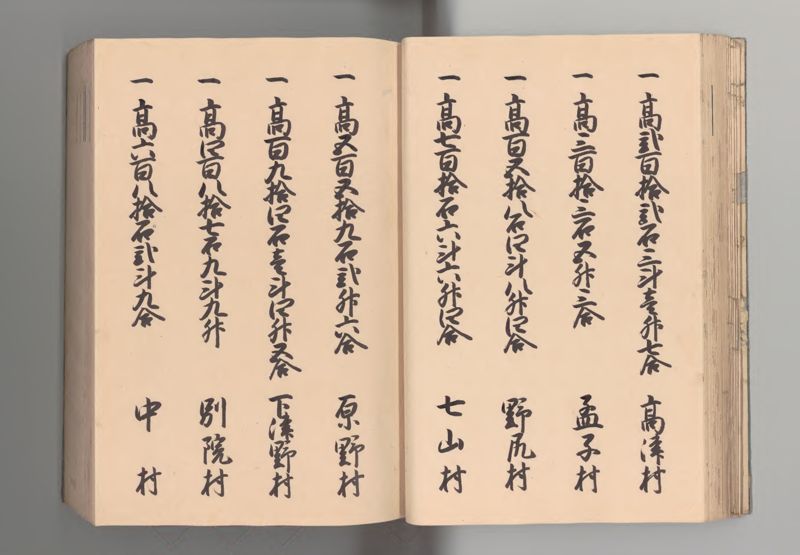 一高弐百拾弐石三斗壱升七合 高津村
一高三百拾三石五升三合 孟子村
一高百五拾八石四斗八升四合 野尻村
一高七百拾石六斗六升四合 七山村
一高五百五拾九石弐升六合 原野村
一高百九拾四石壱斗四升五合 下津野村
一高四百八拾七石九斗九升 別院村
一高六百八拾石弐斗九合 中村